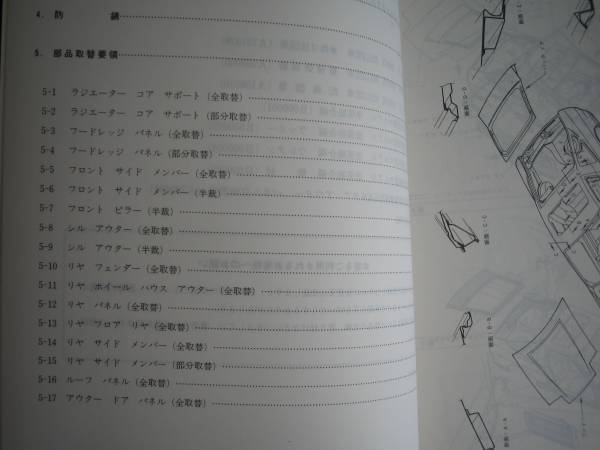 4. 防　　錆
5. 部品取替要領
5-1 ラジエーター コア サポート (全取替)
5-2 ラジエーター コア サポート (部分取替)
5-3 フードレッジ パネル (全取替)
5-4 フードレッジ パネル (部分取替)
5-5 フロント サイド メンバー (全取替)
5-6 フロント サイド メンバー (半裁)
5-7 フロント ピラー (半裁)
5-8 シル アウター (全取替)
5-9 シル アウター (半裁)
5-10 リヤ フェンダー (全取替)
5-11 リヤ ホイール ハウス アウター (全取替)
5-12 リヤ パネル (全取替)
5-13 リヤ フロア リヤ (全取替)
5-14 リヤ サイド メンバー (全取替)
5-15 リヤ サイド メンバー (部分取替)
5-16 ルーフ パネル (全取替)
5-17 アウター ドア パネル (全取替)